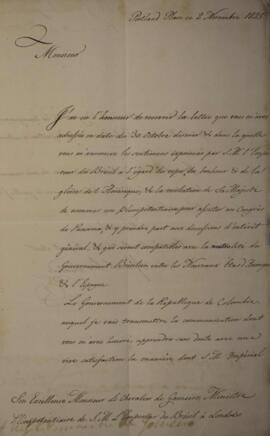 Portland Place ce 2 Novembre 1825
Monsieur
J'ai eu l'honneur de recevoir la lettre que vous m'avez
adressée en date du 30 Octobre dernier & dans laquelle
vous m'annoncez les sentimens exprimés par S. M. l'Empe
reur du Brésil à l'égard du repos, du bonheur & de la
gloire de l'Amérique, & la résolution de Sa Majesté
de nommer un Plénipotentiaire pour assister au Congrès
de Panama, & y prendre part aux discussions d'intérêt
général, & qui seront compatibles avec la neutralité du
Gouvernement Brésilien entre les Nouveaux États d'Amérique
& l'Espagne
Le Gouvernement de la République de Colombie
auquel je vais transmettre la communication dont
vous m'avez honoré, apprendra sans doute avec une
vive satisfaction la manière dont S. M. Impérial
Son Excellence Monsieur le Chevalier de Gameiro, Ministre
Plénipotentiaire de S. M. l'Empereur du Brésil à Londres